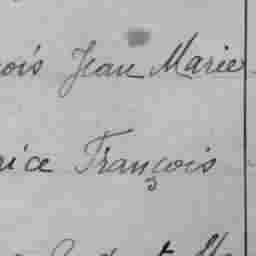 ois Jean Marie
rice François